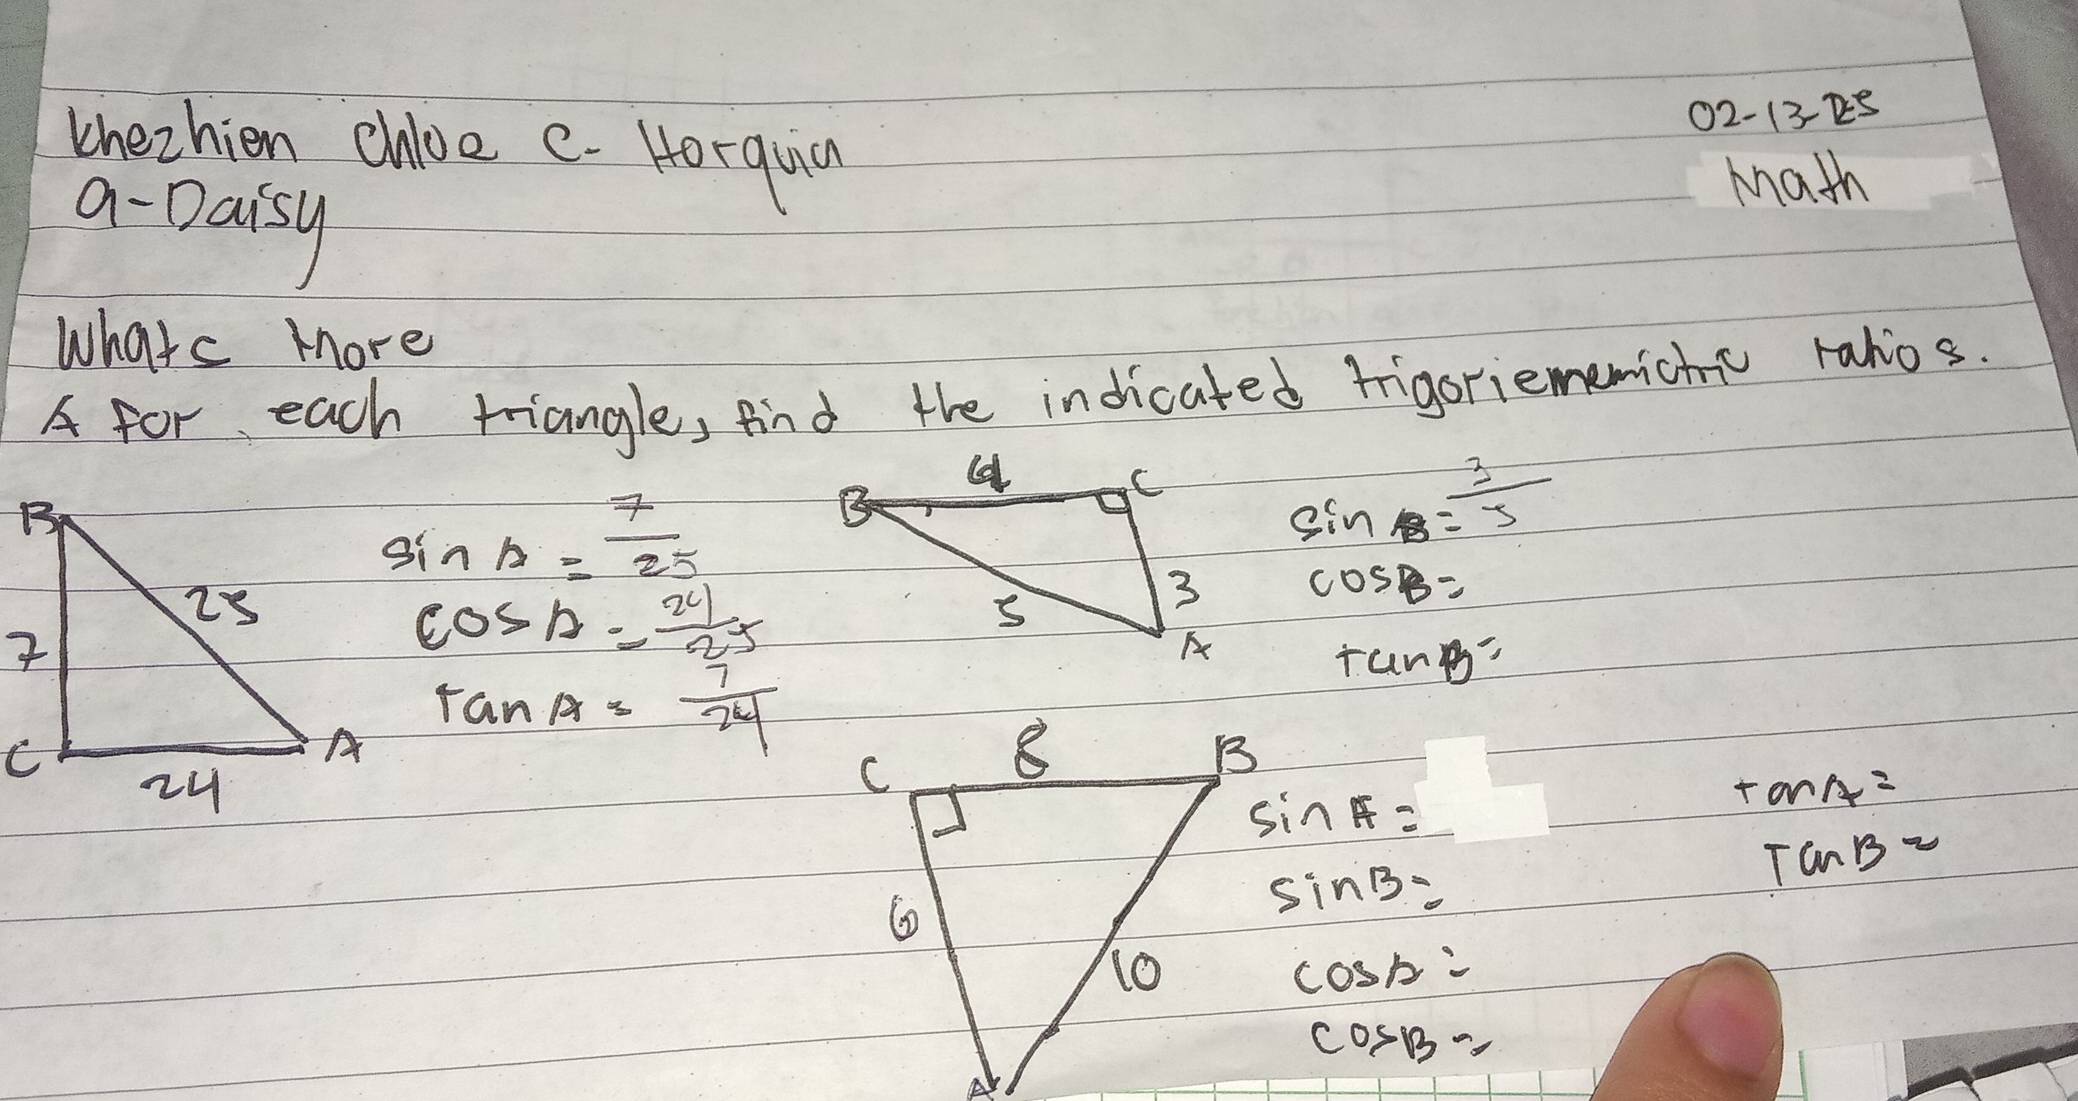 Khezhien Chloe C. Horquia
9-Daisy
02-13-25
Math
Whats More
A For each triangle, find the indicated trigoriememictric ratios.
B
7
25
C
24
A
sin A = 7/25
cos A = 24/25
Tan A = 7/24
B
4
C
5
3
A
sin B = 3/5
cos B =
tan B =
C
8
B
6
10
A
sin A =
sin B =
cos A =
cos B =
tan A =
Tan B =